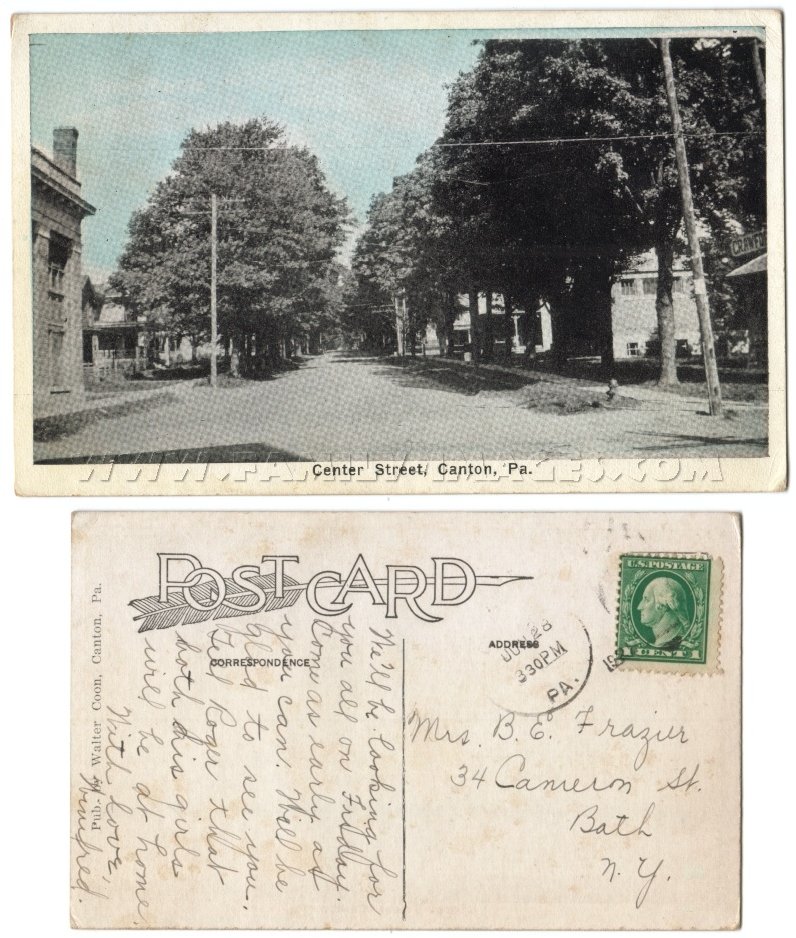 CRAWFO
WWW.FAMILY-IMAGES.COM
Center Street, Canton, Pa.
POST CARD
CORRESPONDENCE
ADDRESS
Pub. by Walter Coon, Canton, Pa.
U.S. POSTAGE
1 CENT 1
JUN 28
330PM
PA.
We'll be looking for
you all on Friday.
Come as early as
you can. Will be
glad to see you.
Tell Roger that
both his girls
will be at home.
With love,
Winifred.
Mrs. B. E. Frazier
34 Cameron St.
Bath
N. Y.